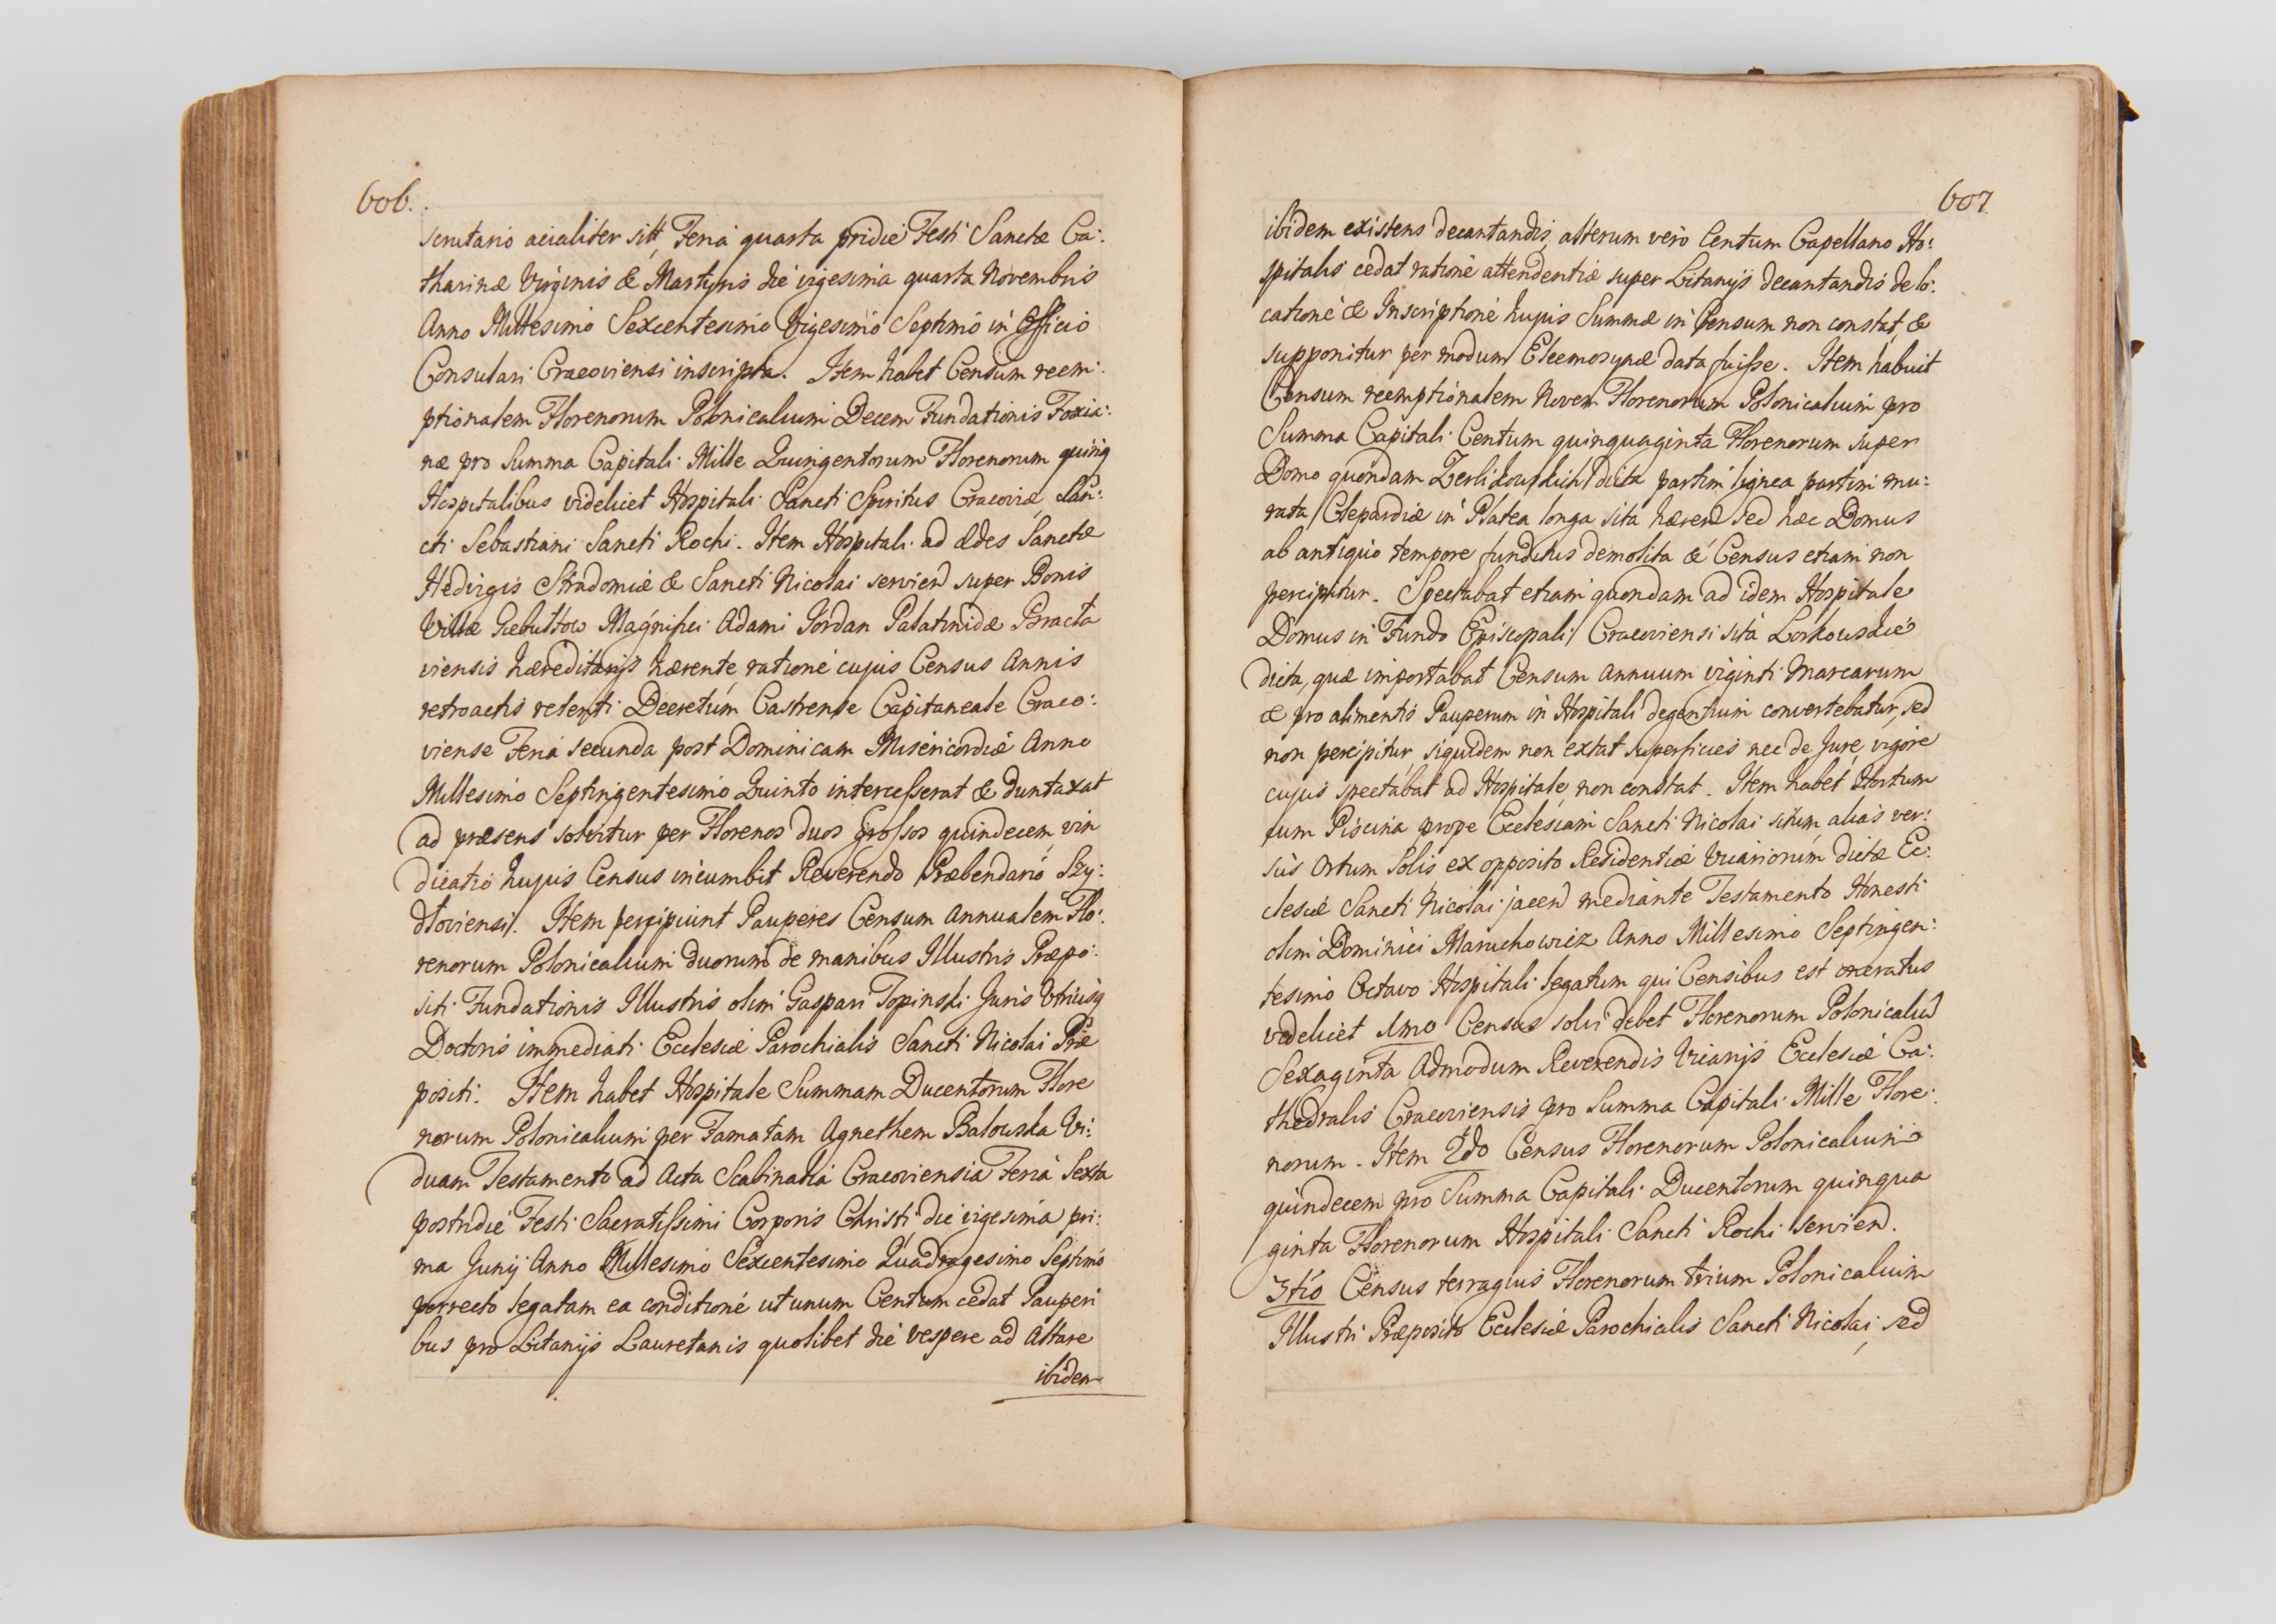 606.
scrutario acialiter sitt, Feria quarta pridie Festi Sanctæ Ca:
tharinæ Virginis & Martyris die vigesima quarta Novembris
Anno Millesimo Sexcentesimo Vigesimo Septimo in Officio
Consulari Cracoviensi inscripta. Item habet Censum reem:
ptionalem Florenorum Polonicalium Decem Fundationis Foxia:
næ pro Summa Capitali Mille Quingentorum Florenorum quinq
Hospitalibus videlicet Hospitali Sancti Spiritus Cracoviæ, San:
cti Sebastiani Sancti Rochi. Item Hospitali ad Ædes Sanctæ
Hedvigis Stradomiæ & Sancti Nicolai servien super Bonis
Villæ Magnifici Adami Jordan Palatinidæ Bracla
viensis hæreditarijs hærente, ratione cujus Census Annis
retroactis retenti Decretum Castrense Capitaneale Craco:
viense Feria secunda post Dominicam Misericordiæ Anno
Millesimo Septingentesimo Quinto intercesserat & duntaxat
ad præsens solvitur per Florenos duos Grossos quindecem, vin
dicatio hujus Census incumbit Reverendo Præbendario Szy:
dloviensi. Item percipiunt Pauperes Censum Annualem Flo:
renorum Polonicalium duorum de manibus Illustris Præpo:
siti Fundationis Illustris olim Gaspari Topinski Juris Utriusq
Doctoris immediati Ecclesiæ Parochialis Sancti Nicolai Præ
positi. Item habet Hospitale Summam Ducentorum Flore
norum Polonicalium per Famatam Agnethem Balouska Vi:
duam Testamento ad Acta Scabinalia Cracoviensia Feria Sexta
postridie Festi Sacratissimi Corporis Christi die vigesima pri:
ma Junij Anno Millesimo Sexcentesimo Quadragesimo Septimo
porrecto legatam ea conditione ut unum Centum cedat Pauperi
bus pro Litanijs Lauretanis quolibet die vespere ad Altare
ibidem
607
ibidem existens decantandis, alterum vero Centum Capellano Ho:
spitalis cedat ratione attendentiæ super Litanijs decantandis de lo:
catione & Inscriptione hujus Summæ in Censum non constat, &
supponitur per modum Eleemosynæ data fuisse. Item habuit
Censum reemptionalem Novem Florenorum Polonicalium pro
Summa Capitali Centum quinquaginta Florenorum super
Domo quondam dicta partim lignea partim mu:
rata Clepardiæ in Platea longa sita hæren sed hæc Domus
ab antiquo tempore funditus demolita & Census etiam non
percipitur. Spectabat etiam quondam ad idem Hospitale
Domus in Fundo Episcopali Cracoviensi sita Lorkouskie
dicta, quæ importabat Censum Annuum viginti Marcarum
& pro alimentis Pauperum in Hospitali degentium convertebatur, sed
non percipitur, siquidem non extat superficies nec de Jure, vigore
cujus spectabat ad Hospitale, non constat. Item habet Hortum
cum Piscina prope Ecclesiam Sancti Nicolai situm, alias ver:
sus Ortum Solis ex opposito Residentiæ Vicariorum dictæ Ec:
clesiæ Sancti Nicolai jacen mediante Testamento Honesti
olim Dominici Maruchowicz Anno Millesimo Septingen:
tesimo Octavo Hospitali legatum qui Censibus est oneratus
videlicet 1mo Census solvi debet Florenorum Polonicaliū
Sexaginta Admodum Reverendis Vicarijs Ecclesiæ Ca:
thedralis Cracoviensis pro Summa Capitali Mille Flore:
norum. Item 2do Census Florenorum Polonicalium
quindecem pro Summa Capitali Ducentorum quinqua
ginta Florenorum Hospitali Sancti Rochi servien.
3tio Census terragius Florenorum trium Polonicalium
Illustri Præposito Ecclesiæ Parochialis Sancti Nicolai, sed